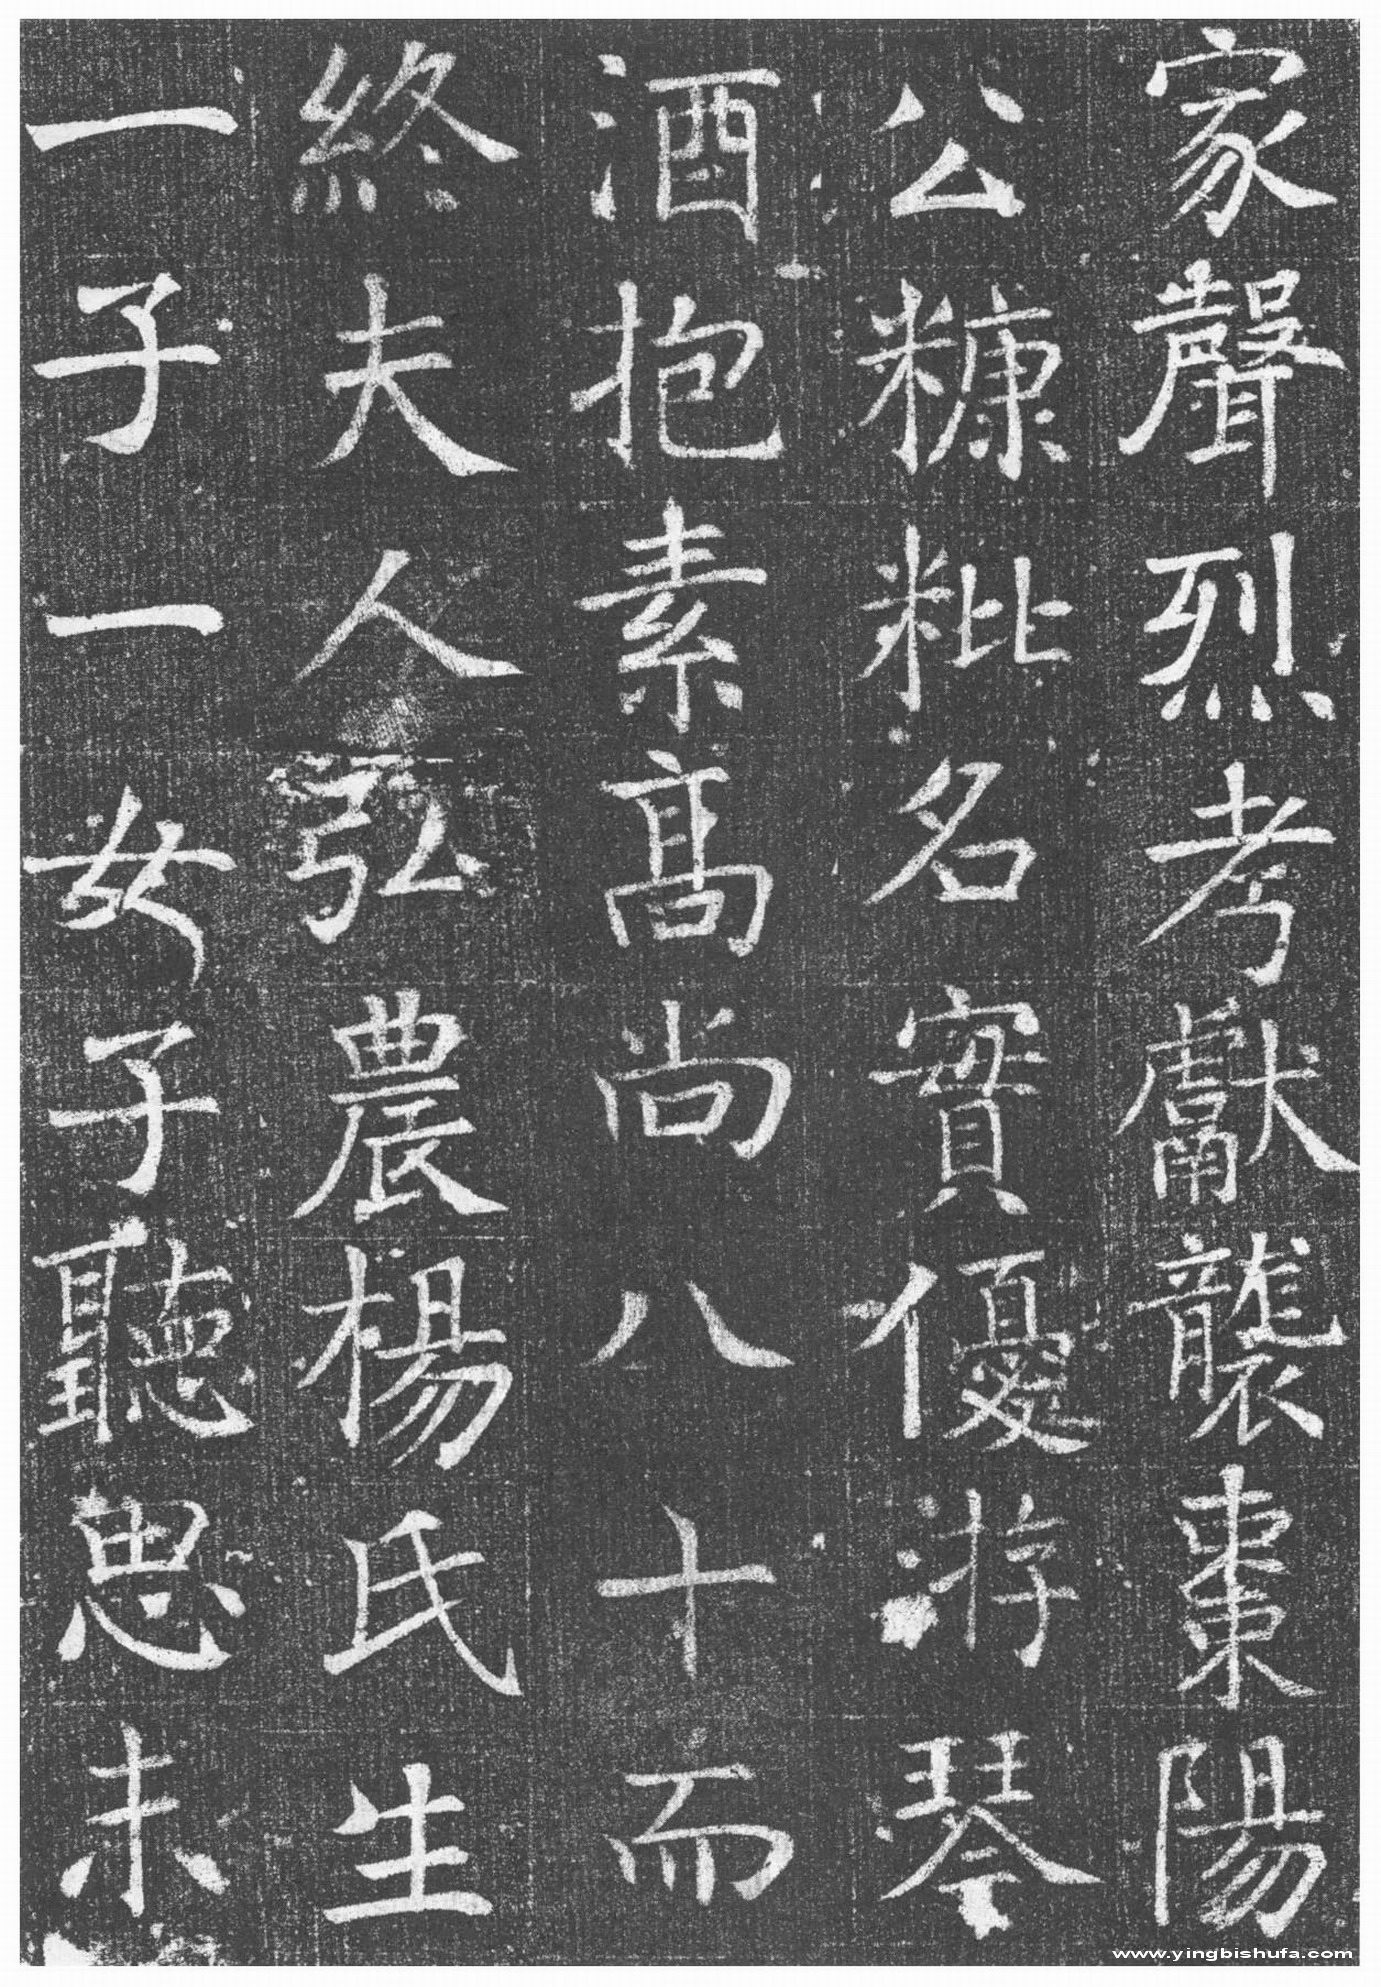 家聲烈考獻襲棗陽
公糠粃名實優游琴
酒抱素高尚八十而
終夫人弘農楊氏生
一子一女子聽思未
www.yingbishufa.com